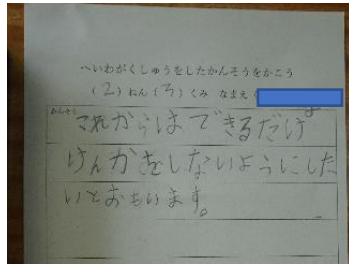 へいわがくしゅうをしたかんそうをかこう
(2)ねん(3)くみ なまえ(
かんそう
これからはできるだけ
けんかをしないようにした
いとおもいます。